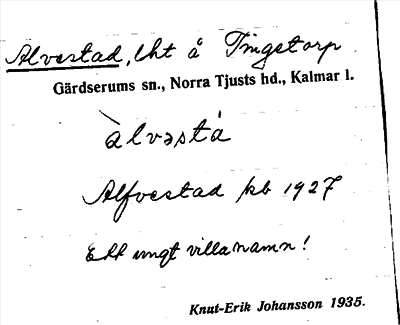 Alvestad, lht å Tingstorp
Gärdserums sn., Norra Tjusts hd., Kalmar l.
àlvəstá
Alfvestad kb 1927
Ett ungt villanamn!
Knut-Erik Johansson 1935.